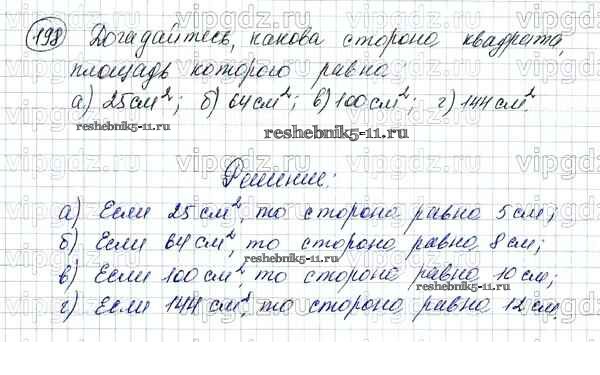 198 Догадайтесь, какова сторона квадрата,
площадь которого равна:
а) 25 см²; б) 64 см²; в) 100 см²; г) 144 см².
reshebnik5-11.ru
reshebnik5-11.ru
Решение:
а) Если 25 см², то сторона равна 5 см;
б) Если 64 см², то сторона равна 8 см;
в) Если 100 см², то сторона равна 10 см;
г) Если 144 см², то сторона равна 12 см.
reshebnik5-11.ru
reshebnik5-11.ru
vipgdz.ru